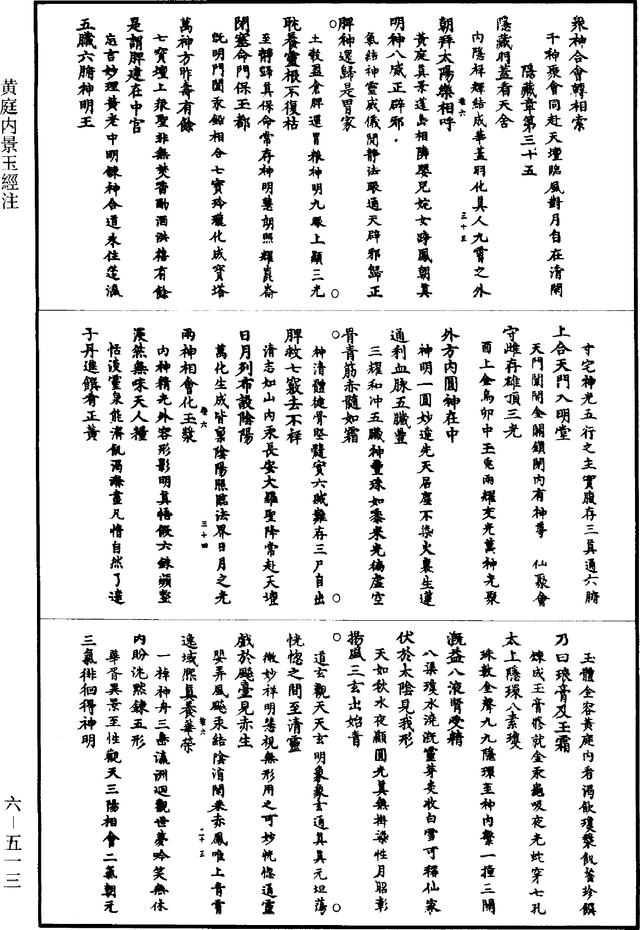 衆神合會轉相索
千神聚會同赴天壇臨風對月自在清閑
隱藏章第三十五
隱藏羽蓋看天舍
內隱祥輝結成華蓋羽化真人九霄之外
卷六
三十三
朝拜太陽樂相呼
黃庭真景蓬島相隣嬰兒姹女跨鳳朝真
明神八威正辟邪
氣結神靈威儀閑靜法眼通天辟邪歸正
脾神還歸是胃家
土穀盈倉脾運胃糧神明九眼上顯三光
耽養靈根不復枯
至靜歸真保命常存神明慧朗照耀崑崙
閉塞命門保玉都
旣明門閫汞鉛相合七寶玲瓏化成寶塔
萬神方昨壽有餘
七寶壇上衆聖非無焚香酌酒洪禧有餘
是謂脾建在中宮
忘言妙理黃老中明鍊神合道來往蓬瀛
五臟六腑神明王
寸宅神光五行之主實腹存三真通六腑
上合天門入明堂
天門闔開金關鎖閉內有神尊 仙聚會
守雌存雄頂三光
酉上金烏卯中玉兎兩耀交光萬神光聚
外方內圓神在中
神明一圓妙逾先天居塵不染火裏生蓮
通利血脉五臟豐
三耀和冲五臟神豐珠如黍米光徧虛空
骨青筋赤髓如霜
神清體健骨堅髓實六賊難存三尸自出
脾救七竅去不祥
清志如山內汞長安大羅聖降常赴天壇
日月列布設陰陽
萬化生成皆禀陰陽照臨法界日月之光
卷六
三十四
兩神相會化玉漿
內神精光外容形影明真悟假六鍊
淡然無味天人糧
恬淡靈泉能濟飢渴滌盡凡情自然了達
子丹進饌肴正黃
玉體金容黃庭內看渴飲瓊漿飢飡珍饌
乃曰琅膏及玉霜
煉成玉膏脩就金汞龜吸夜光蛇穿七孔
太上隱環八素瓊
珠數金聲九九隱環至神內繫一撞三關
溉益八液腎受精
八渠瓊水澆溉靈芽麥收白雪可稱仙家
伏於太陰見我形
天如秋水夜顯圓光真無掛染性月昭彰
揚風三玄出始青
道玄觀天天玄明象象玄通真真元坦蕩
恍惚之間至清靈
微妙祥明慧視無形用之可妙恍惚通靈
戲於飇臺見赤生
嬰弄風飇汞結陰消閑乘赤鳳唯上青霄
卷六
三十五
逸域熙真養華榮
一棹神舟三島瀛洲迴觀世夢吟笑無休
內盼沈默鍊五形
華胥異景至性觀天三陽相會二氣朝元
三氣徘徊得神明
黃庭內景玉經注
六-五一三